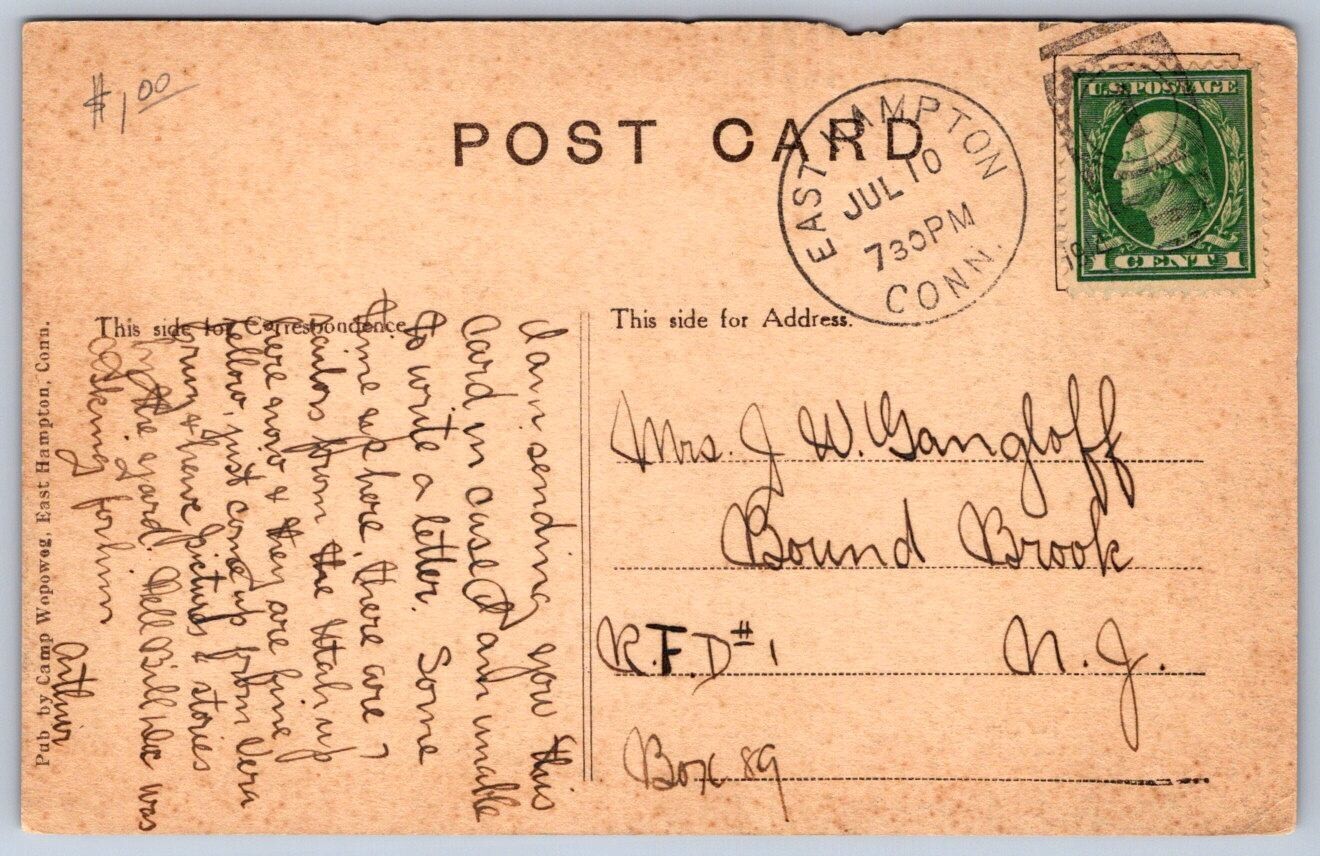 $1.00
POST CARD
EAST HAMPTON
JUL 10
730PM
CONN.
U.S. POSTAGE
1 CENT 1
This side for Correspondence.
This side for Address.
I am sending you this
Card in case I am unable
to write a letter. Some
time up here, there are 7
sailors from the Utah up
here now & they are fine
fellow, just come up from Vera
Cruz & have pictures & stories
by the yard. Tell Bill Doc was
asking for him
Arthur
Mrs. J W. Gangloff
Bound Brook
R.F.D #1 N. J.
Box 89
Pub by Camp Wopowog, East Hampton, Conn.